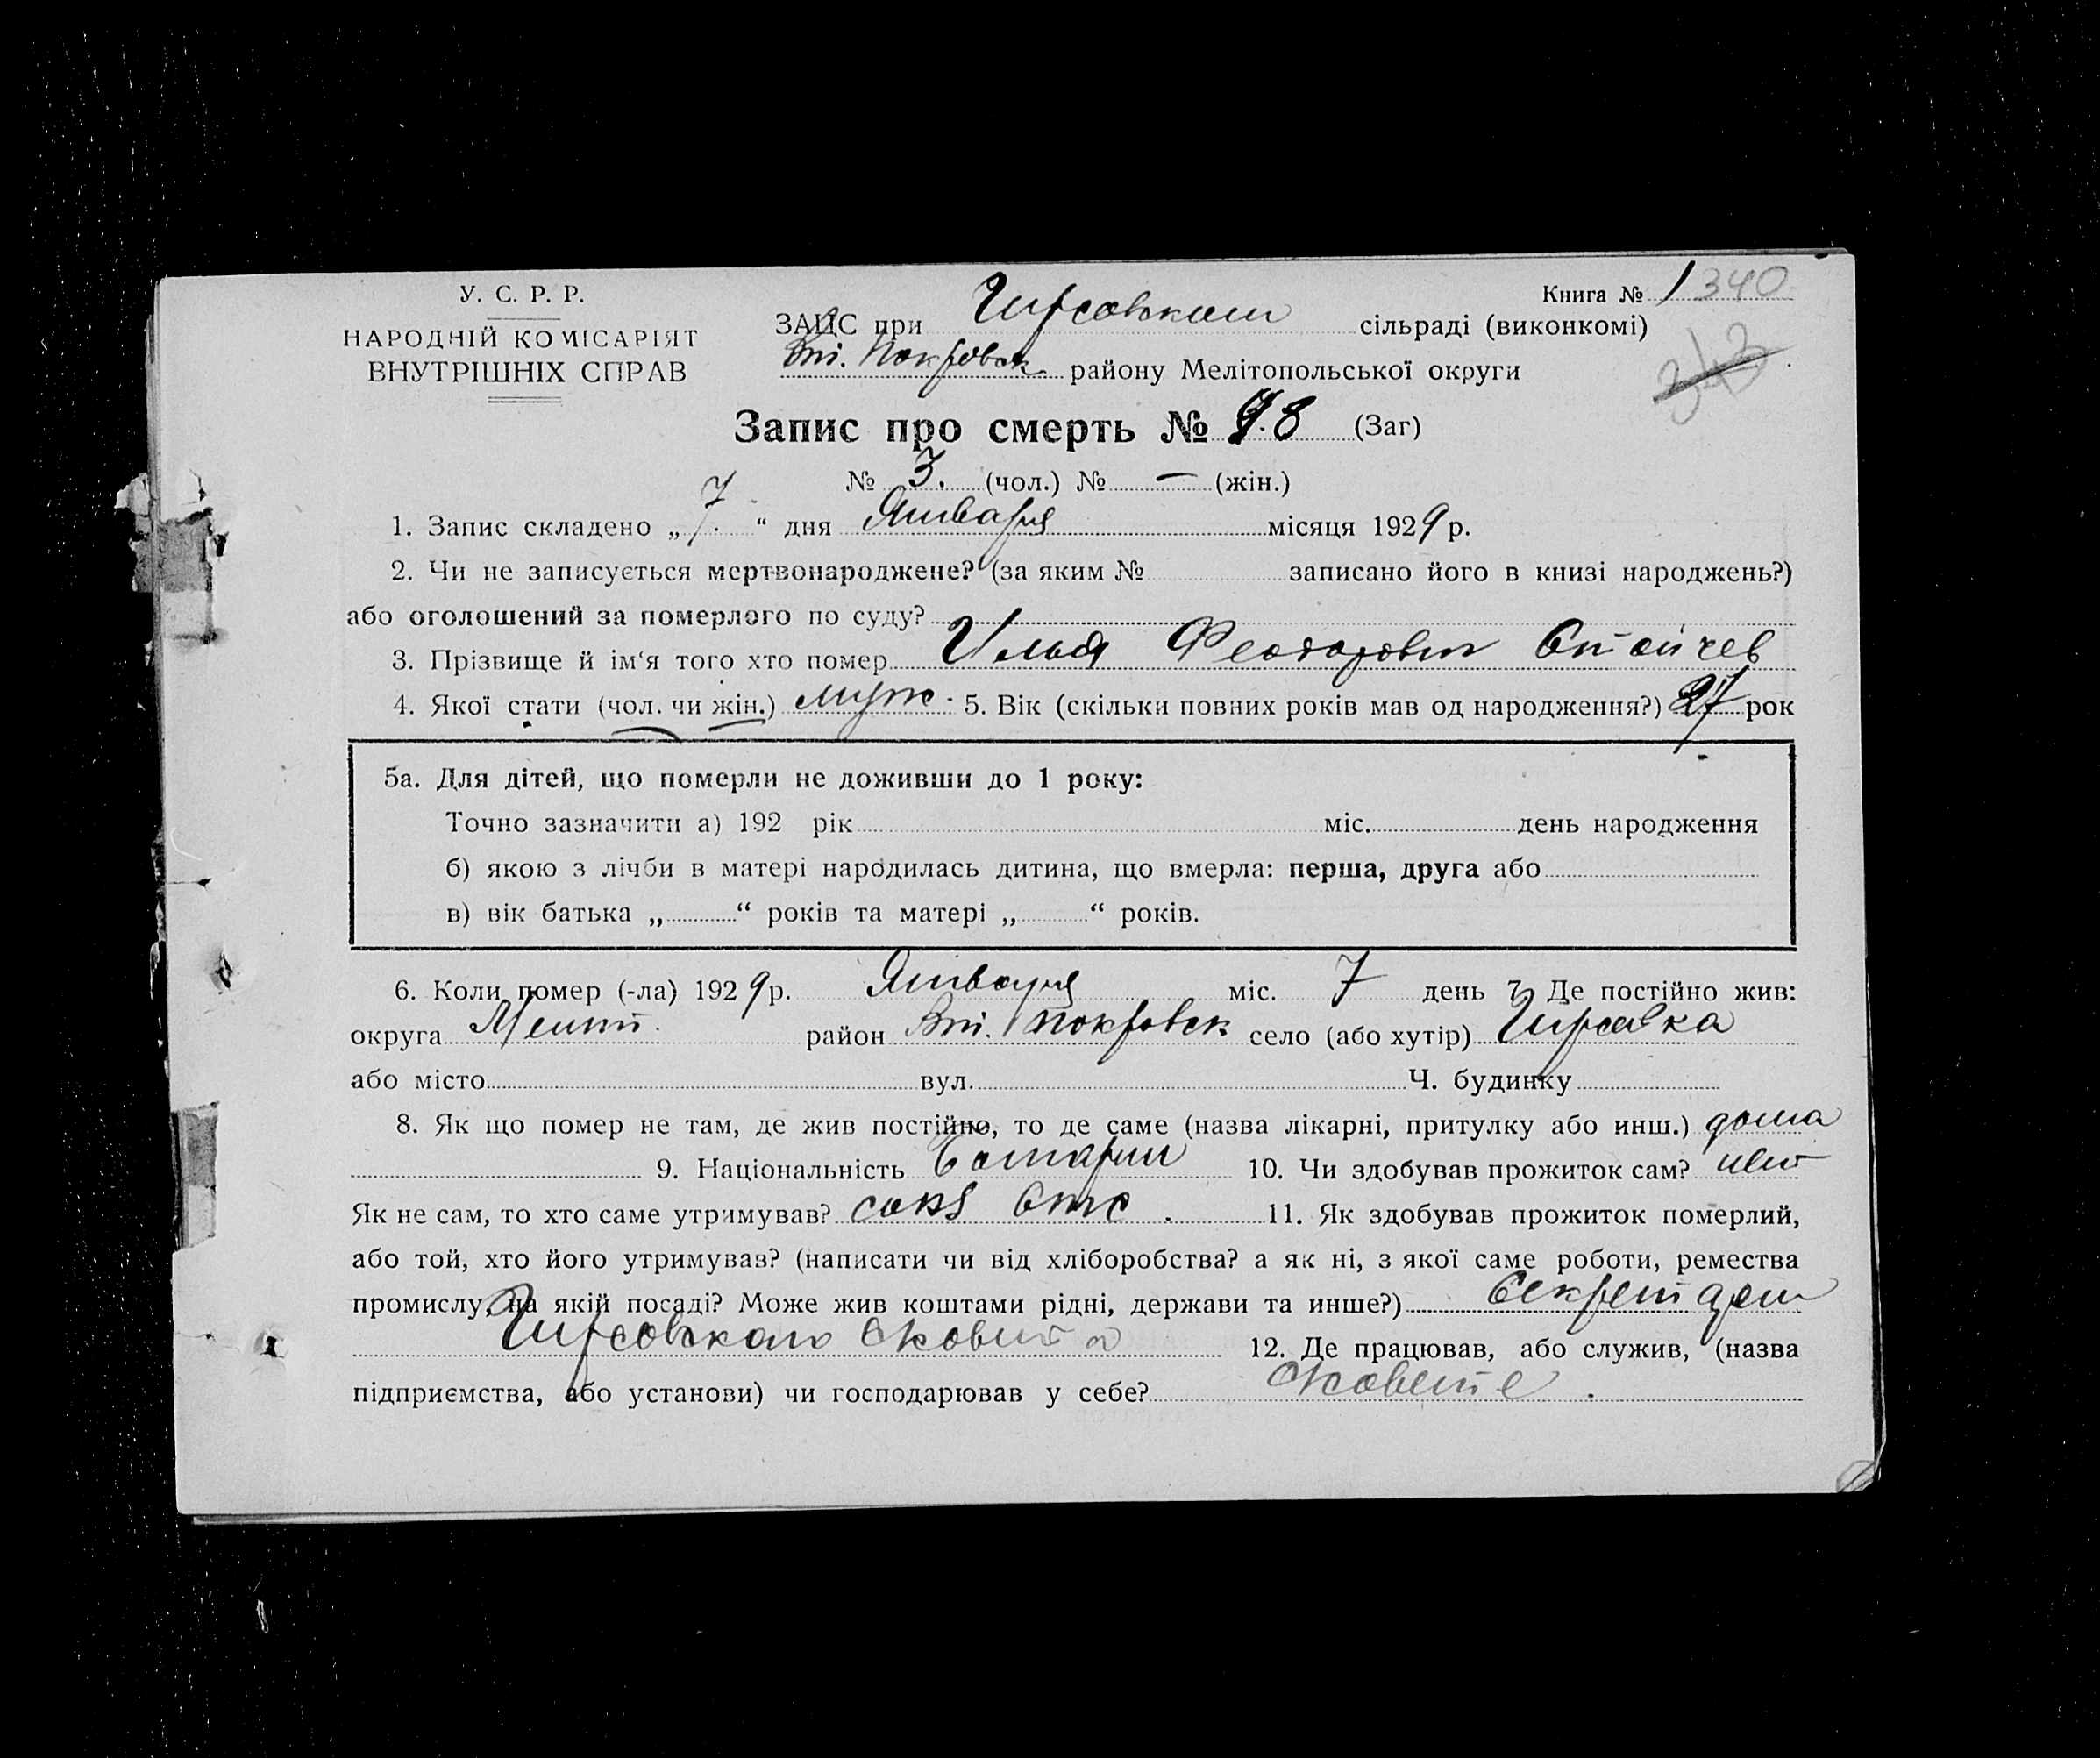 У. С. Р. Р.
НАРОДНІЙ КОМІСАРІЯТ
ВНУТРІШНІХ СПРАВ
Книга № 1 340
343
ЗАЦС при Гирсовском сільраді (виконкомі)
Вт. Покровск району Мелітопольської округи
Запис про смерть № 8 (Заг)
№ 3. (чол.) № — (жін.)
1. Запис складено „ 7. “ дня Января місяця 1929 р.
2. Чи не записується мертвонароджене? (за яким № записано його в книзі народжень?)
або оголошений за померлого по суду?
3. Прізвище й ім‘я того хто помер Илья Феодорович Стойчев
4. Якої стати (чол. чи жін.) муж. 5. Вік (скільки повних років мав од народження?) 27 рок
5а. Для дітей, що померли не доживши до 1 року:
Точно зазначити а) 192 рік міс. день народження
б) якою з лічби в матері народилась дитина, що вмерла: перша, друга або
в) вік батька „ “ років та матері „ “ років.
6. Коли помер (-ла) 1929 р. Января міс. 7 день 7. Де постійно жив:
округа Мелит. район Вт. Покровск село (або хутір) Гирсовка
або місто вул. Ч. будинку
8. Як що помер не там, де жив постійно, то де саме (назва лікарні, притулку або инш.) дома
9. Національність Болгарин 10. Чи здобував прожиток сам?
Як не сам, то хто саме утримував? 11. Як здобував прожиток померлий,
або той, хто його утримував? (написати чи від хліборобства? а як ні, з якої саме роботи, ремества
промислу, на якій посаді? Може жив коштами рідні, держави та инше?)
Гирсовского 12. Де працював, або служив, (назва
підприємства, або установи) чи господарював у себе?